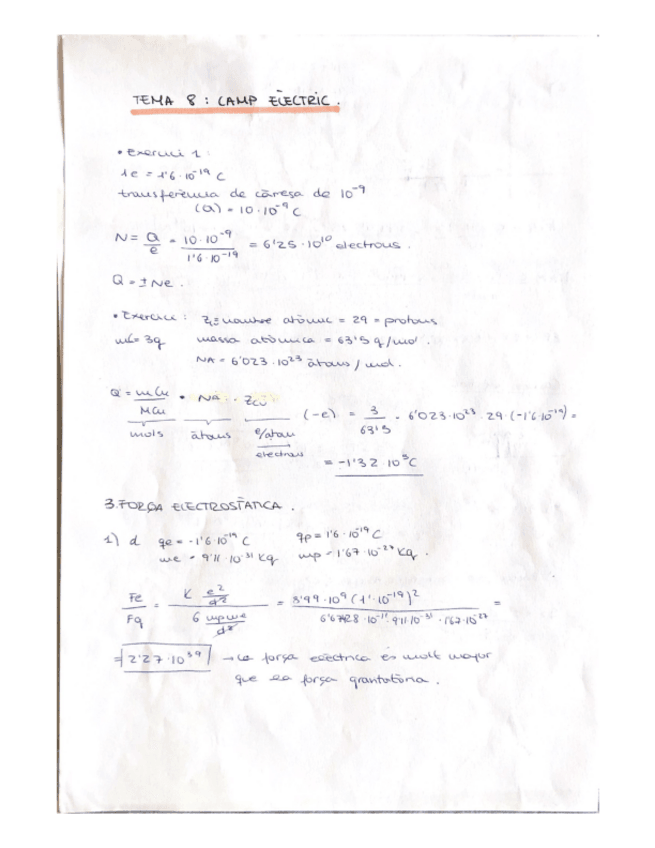 TEMA 8 : CAMP ELÈCTRIC.
• Exercici 1:
1e = 1'6·10⁻¹⁹ C
transferència de càrrega de 10⁻⁹
(Q) = 10·10⁻⁹ C
N = Q/e = 10·10⁻⁹/1'6·10⁻¹⁹ = 6'25·10¹⁰ electrons.
Q = ±Ne.
• Exercici : Z = nombre atòmic = 29 = protons
m = 3g massa atòmica = 63'5 g/mol.
NA = 6'023·10²³ àtoms/mol.
Q = mCu/MCu · NA · ZCu (-e) = 3/63'5 · 6'023·10²³·29·(-1'6·10⁻¹⁹) =
mols àtoms e/àtom
electrons
= -1'32·10⁵ C
3. FORÇA ELECTROSTÀTICA.
1) d qe = -1'6·10⁻¹⁹ C qp = 1'6·10⁻¹⁹ C
me = 9'11·10⁻³¹ Kg mp = 1'67·10⁻²⁷ Kg.
Fe/Fg = K e²/d² / G mpme/d² = 8'99·10⁹ (1'·10⁻¹⁹)² / ·10⁻¹¹·9'11·10⁻³¹·1'67·10⁻²⁷ =
= 2'27·10³⁹ → la força elèctrica és molt major
que la força gravitatòria.